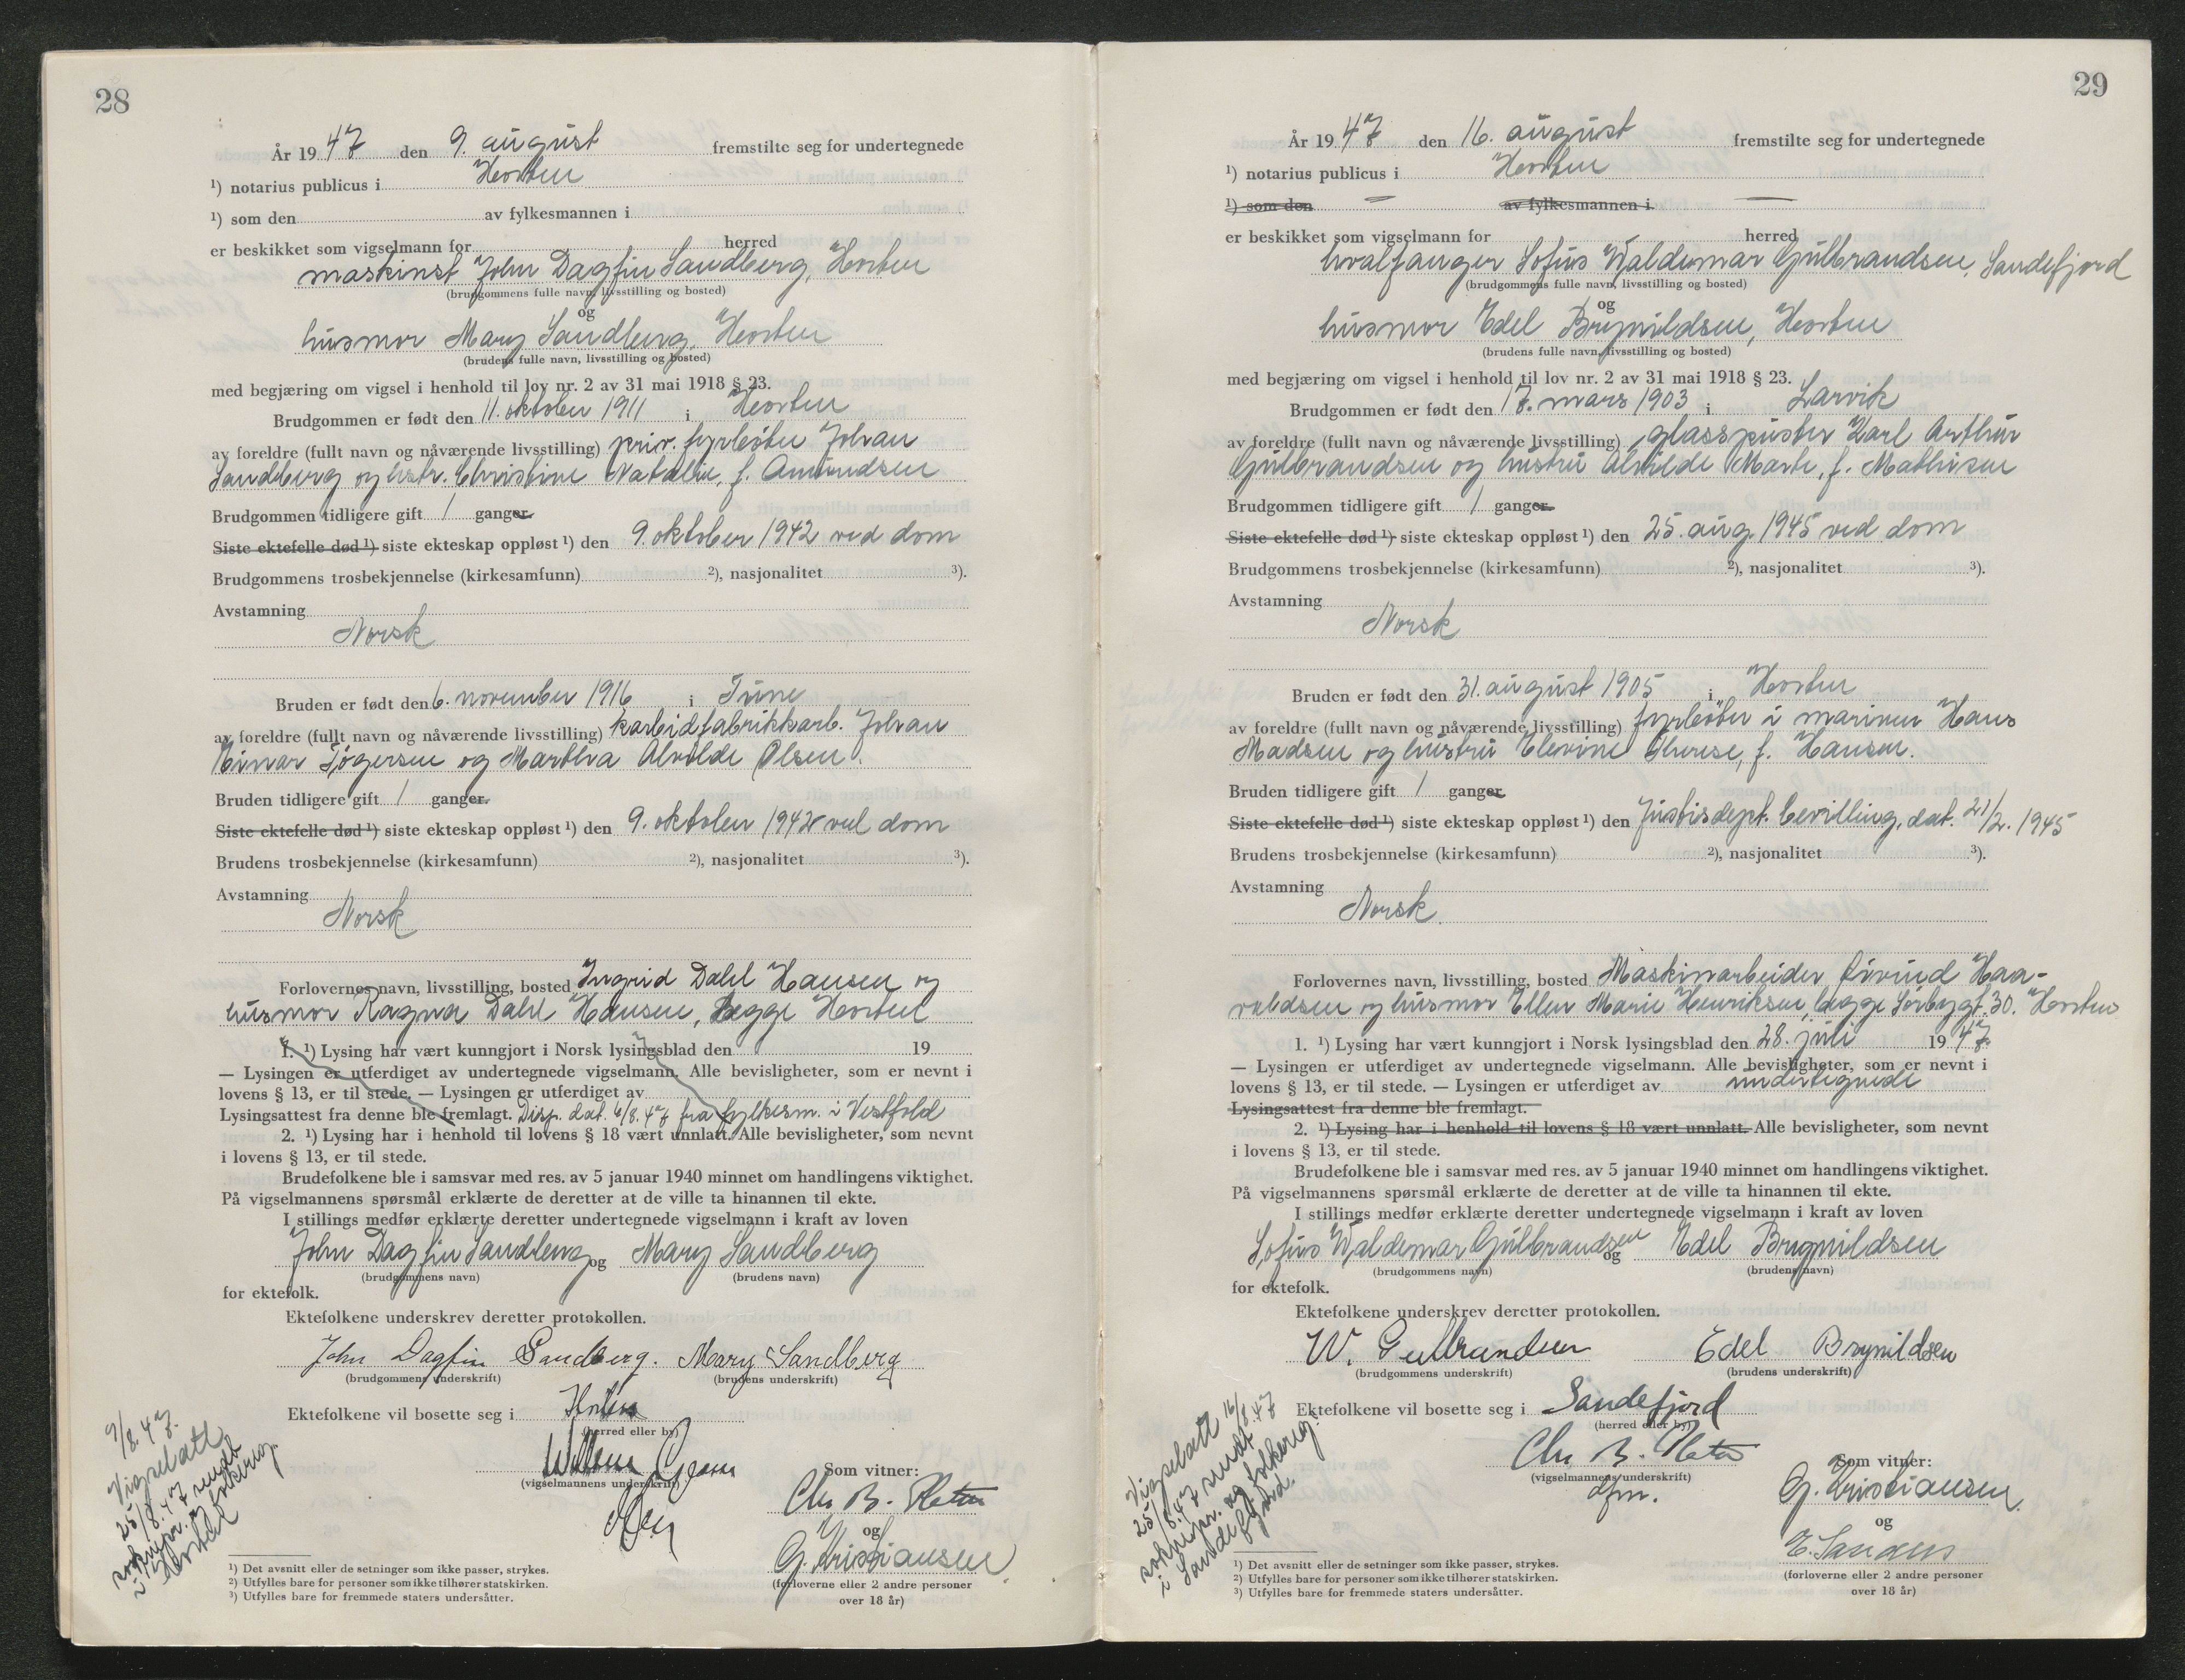 28
År 1947 den 9. august fremstilte seg for undertegnede
¹) notarius publicus i Horten
¹) som den av fylkesmannen i
er beskikket som vigselmann for herred
maskinist John Dagfin Sandberg, Horten
(brudgommens fulle navn, livsstilling og bosted)
og
husmor Mary Sandberg, Horten
(brudens fulle navn, livsstilling og bosted)
med begjæring om vigsel i henhold til lov nr. 2 av 31 mai 1918 § 23.
Brudgommen er født den 11. oktober 1911 i Horten
av foreldre (fullt navn og nåværende livsstilling) priv. fyrbøter Johan
Sandberg og hstr. Christine Natalie, f. Amundsen
Brudgommen tidligere gift 1 ganger.
Siste ektefelle død ¹) siste ekteskap oppløst ¹) den 9. oktober 1942 ved dom
Brudgommens trosbekjennelse (kirkesamfunn) ²), nasjonalitet ³).
Avstamning
Norsk
Bruden er født den 6. november 1916 i Tune
av foreldre (fullt navn og nåværende livsstilling) karbidfabrikkarb. Johan
Einar Tøgersen og Martha Alvilde Olsen.
Bruden tidligere gift 1 ganger.
Siste ektefelle død ¹) siste ekteskap oppløst ¹) den 9. oktober 1942 ved dom
Brudens trosbekjennelse (kirkesamfunn) ²), nasjonalitet ³).
Avstamning
Norsk
Forlovernes navn, livsstilling, bosted Ingrid Dahl Hansen og
husmor Ragna Dahl Hansen, begge Horten
1. ¹) Lysing har vært kunngjort i Norsk lysingsblad den 19
— Lysingen er utferdiget av undertegnede vigselmann. Alle bevisligheter, som er nevnt i
lovens § 13, er til stede. — Lysingen er utferdiget av
Lysingsattest fra denne ble fremlagt. Disp. dat. 6/8.47 fra fylkesm. i Vestfold
2. ¹) Lysing har i henhold til lovens § 18 vært unnlatt. Alle bevisligheter, som nevnt
i lovens § 13, er til stede.
Brudefolkene ble i samsvar med res. av 5 januar 1940 minnet om handlingens viktighet.
På vigselmannens spørsmål erklærte de deretter at de ville ta hinannen til ekte.
I stillings medfør erklærte deretter undertegnede vigselmann i kraft av loven
John Dagfin Sandberg og Mary Sandberg
(brudgommens navn) (brudens navn)
for ektefolk.
Ektefolkene underskrev deretter protokollen.
John Dagfin Sandberg. Mary Sandberg
(brudgommens underskrift) (brudens underskrift)
Ektefolkene vil bosette seg i Horten
(herred eller by)
(vigselmannens underskrift)
Som vitner:
Chr. B.
og
G. Kristiansen
(forloverne eller 2 andre personer
over 18 år)
9/8.47.
Vigselatt
25/8.47 sendt
soknepr. og folkereg.
i Horten
¹) Det avsnitt eller de setninger som ikke passer, strykes.
²) Utfylles bare for personer som ikke tilhører statskirken.
³) Utfylles bare for fremmede staters undersåtter.
29
År 1947 den 16. august fremstilte seg for undertegnede
¹) notarius publicus i Horten
¹) som den — av fylkesmannen i —
er beskikket som vigselmann for herred
hvalfanger Sofus Waldemar Gulbrandsen, Sandefjord
(brudgommens fulle navn, livsstilling og bosted)
og
husmor Edel Brynildsen, Horten
(brudens fulle navn, livsstilling og bosted)
med begjæring om vigsel i henhold til lov nr. 2 av 31 mai 1918 § 23.
Brudgommen er født den 17. mars 1903 i Larvik
av foreldre (fullt navn og nåværende livsstilling) glasspuster Karl Arthur
Gulbrandsen og hustru Alvilde Marte, f. Mathisen
Brudgommen tidligere gift 1 ganger.
Siste ektefelle død ¹) siste ekteskap oppløst ¹) den 25. aug. 1945 ved dom
Brudgommens trosbekjennelse (kirkesamfunn) ²), nasjonalitet ³).
Avstamning
Norsk
Bruden er født den 31. august 1905 i Horten
av foreldre (fullt navn og nåværende livsstilling) fyrbøter i marinen Hans
Madsen og hustru Elevine Therese, f. Hansen.
Bruden tidligere gift 1 ganger
Siste ektefelle død ¹) siste ekteskap oppløst ¹) den Justisdept. bevilling, dat. 21/2. 1945
Brudens trosbekjennelse (kirkesamfunn) ²), nasjonalitet ³).
Avstamning
Norsk
Forlovernes navn, livsstilling, bosted Maskinarbeider Øivind Haa-
valdsen og husmor Ellen Marie Henriksen, begge Sørbygt. 30. Horten
1. ¹) Lysing har vært kunngjort i Norsk lysingsblad den 28. juli 1947
— Lysingen er utferdiget av undertegnede vigselmann. Alle bevisligheter, som er nevnt i
lovens § 13, er til stede. — Lysingen er utferdiget av undertegnede
Lysingsattest fra denne ble fremlagt.
2. ¹) Lysing har i henhold til lovens § 18 vært unnlatt. Alle bevisligheter, som nevnt
i lovens § 13, er til stede.
Brudefolkene ble i samsvar med res. av 5 januar 1940 minnet om handlingens viktighet.
På vigselmannens spørsmål erklærte de deretter at de ville ta hinannen til ekte.
I stillings medfør erklærte deretter undertegnede vigselmann i kraft av loven
Sofus Waldemar Gulbrandsen og Edel Brynildsen
(brudgommens navn) (brudens navn)
for ektefolk.
Ektefolkene underskrev deretter protokollen.
W. Gulbrandsen Edel Brynildsen
(brudgommens underskrift) (brudens underskrift)
Ektefolkene vil bosette seg i Sandefjord
(herred eller by)
Chr. B.
(vigselmannens underskrift)
dfm.
Som vitner:
G. Kristiansen.
og
(forloverne eller 2 andre personer
over 18 år)
Vigselatt 16/8.47
25/8.47 sendt
soknepr. og folkereg.
i Sandefjord.
¹) Det avsnitt eller de setninger som ikke passer, strykes.
²) Utfylles bare for personer som ikke tilhører statskirken.
³) Utfylles bare for fremmede staters undersåtter.